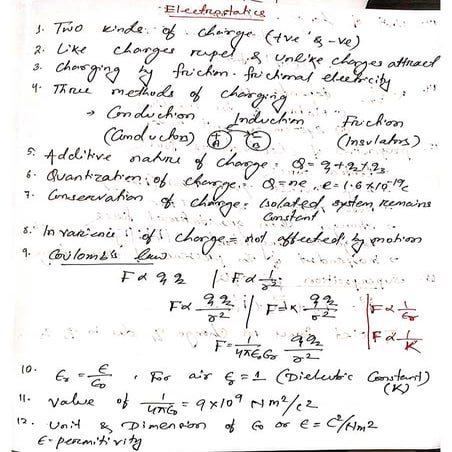 Electrostatics
1. Two kinds of charge (+ve & -ve)
2. Like charges repel & unlike charges attract
3. Charging by friction - frictional electricity
4. Three methods of charging
→ Conduction Induction Friction
(Conductors) + A - A (Insulators)
5. Additive nature of charge = Q = q1 + q2 + q3
6. Quantization of charge = Q = ne, e = 1.6×10⁻¹⁹c
7. Conservation of charge = Isolated system remains
Constant
8. Invarience of charge = not affected by motion
9. Coulomb's law
F ∝ q1 q2 | F ∝ 1/r²
F ∝ q1 q2/r² | F = K q1 q2/r² | F ∝ 1/εr
F = 1/4πε0εr q1 q2/r² | F ∝ 1/K
10. εr = ε/ε0, For air εr = 1 (Dielectric Constant)
(K)
11. Value of 1/4πε0 = 9×10⁹ Nm²/c²
12. Unit & Dimension of ε0 or ε = C²/Nm²
ε - permitivity